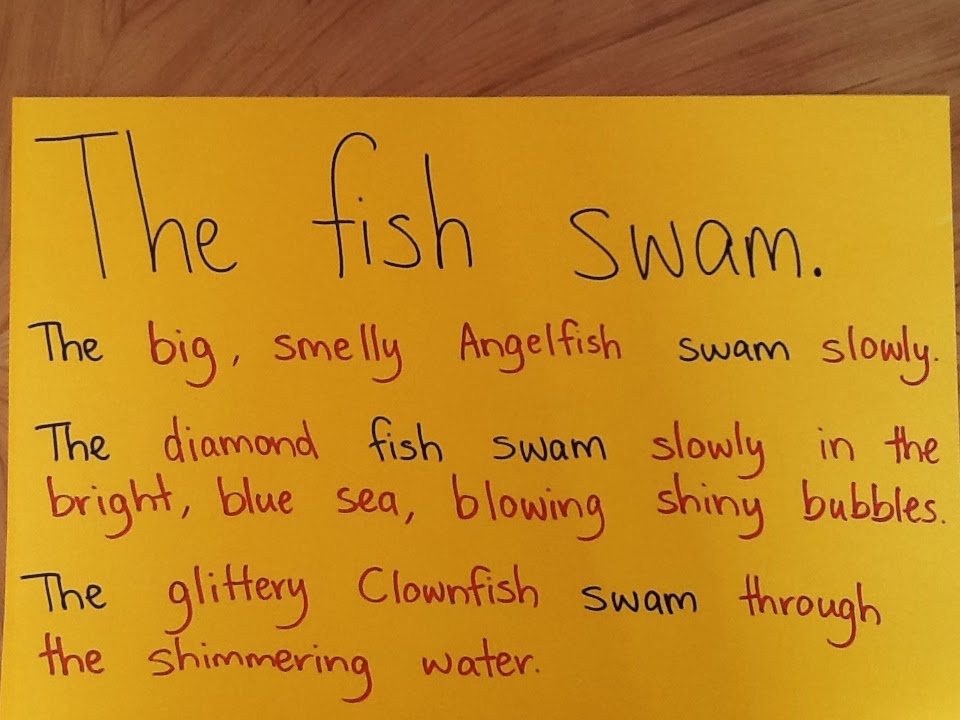 The fish swam.
The big, smelly Angelfish swam slowly.
The diamond fish swam slowly in the
bright, blue sea, blowing shiny bubbles.
The glittery Clownfish swam through
the shimmering water.